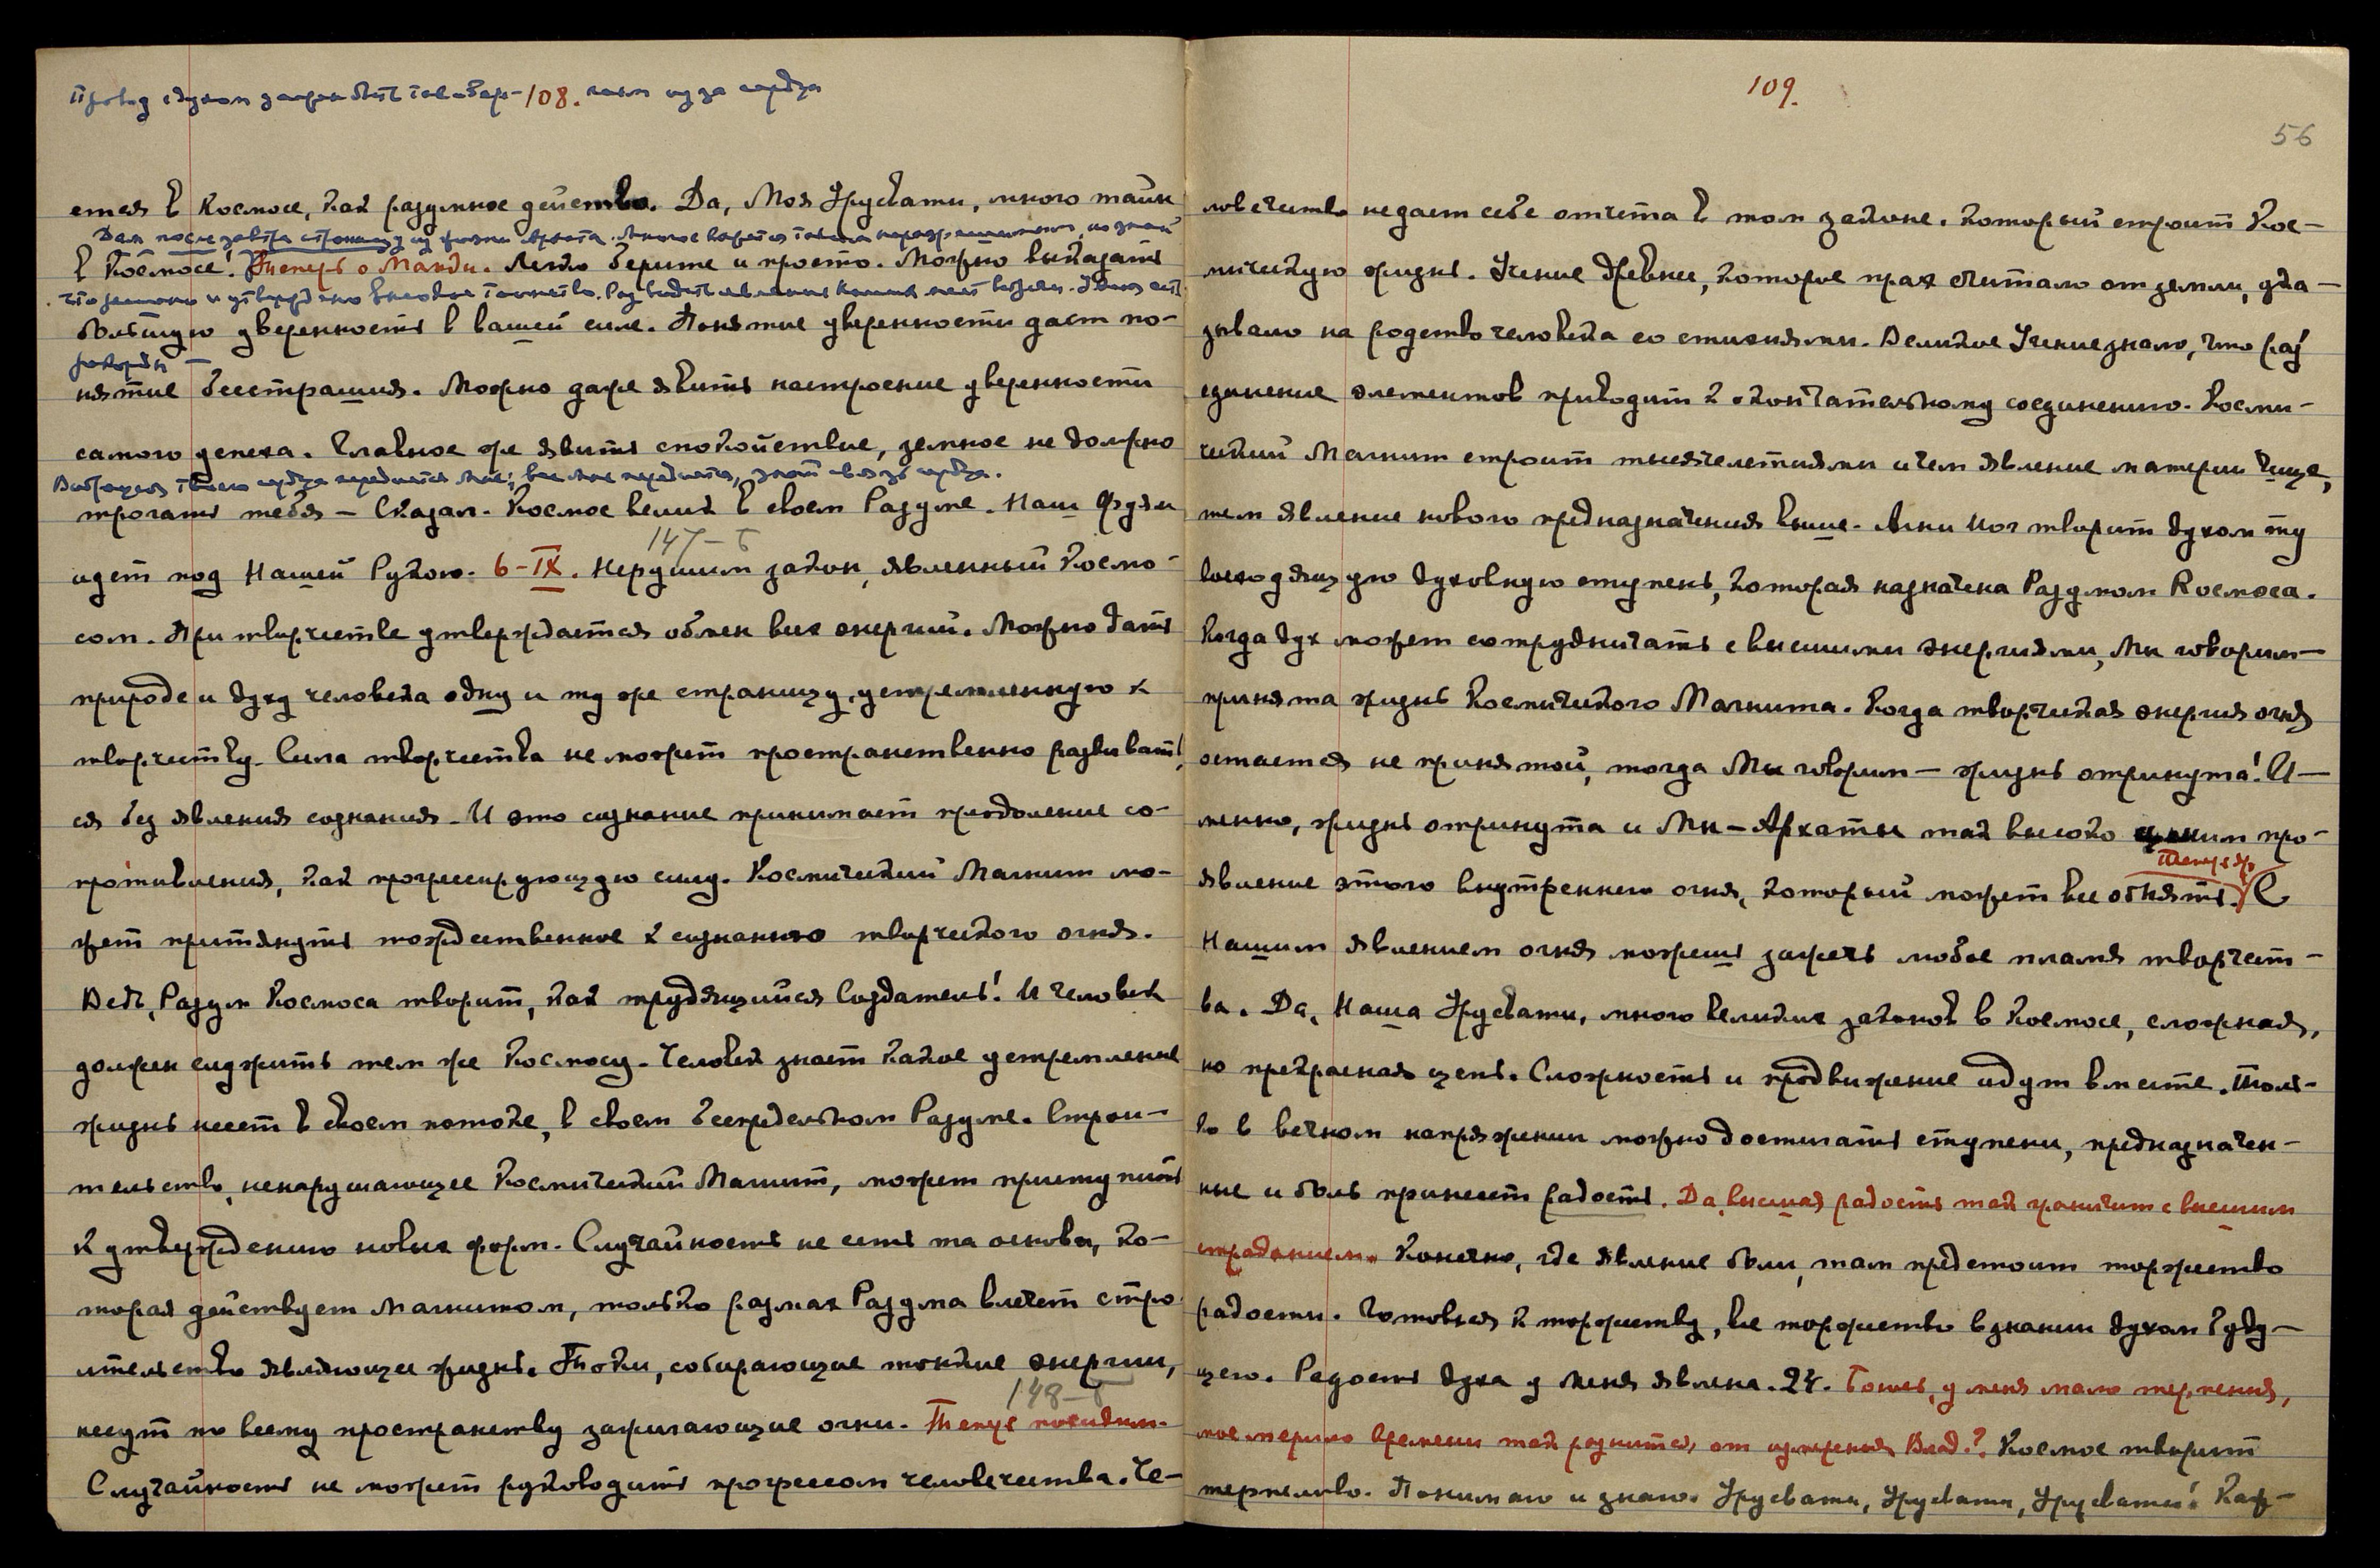 108.
ется в Космосе, как разумное действо. Да, Моя Урусвати, много тайн
Дам послезавтра страницу из жизни Архата. Многое
в Космосе! Теперь о Манди. Легко берите и просто. Можно выказать
большую уверенность в вашей силе. Понятие уверенности дает по-
нятие бесстрашия. Можно даже явить настроение уверенности
самого успеха. Главное же явить спокойствие, земное не должно
твоего сердца передается Мне; все Мне передается, связь сердца.
трогать тебя – Сказал. Космос велик в своем Разуме. Наш Фуяма
147–Б
идет под Нашей Рукою. 6–IX. Нерушим закон, явленный Космо-
сом. При творчестве утверждается обмен всех энергий. Можно дать
природе и духу человека одну и ту же страницу, устремленную к
творчеству. Сила творчества не может пространственно развивать-
ся без явления сознания. И это сознание принимает преодоление со-
противления, как прогрессирующую силу. Космический Магнит мо-
жет притянуть тождественное к сознанию творческого огня.
Ведь, Разум Космоса творит, как трудящийся Создатель! И человек
должен служить тем же Космосу. Человек знает какое устремление
жизнь несет в своем потоке, в своем беспредельном Разуме. Строи-
тельство, ненарушающее Космический Магнит, может приступить
к утверждению новых форм. Случайность не есть та основа, ко-
торая действует Магнитом, только размах Разума влечет стро
ительство являющее жизнь. Токи, собирающие тонкие энергии,
148–Б
несут по всему пространству зажигающие огни. Теперь посидим.
Случайность не может руководить прогрессом человечества. Че-
109.
56
ловечество не дает себе отчета в том законе, который строит Кос-
мическую жизнь. Учение древнее, которое прах считало от земли, ука-
зывало на родство человека со стихиями. Великое Учение знало, что раз
единение элементов приводит к окончательному соединению. Косми-
ческий Магнит строит тысячелетиями и чем явление материи чище,
тем явление нового предназначения выше. Агни Йог творит духом ту
восходящую духовную ступень, которая назначена Разумом Космоса.
Когда дух может сотрудничать с высшими энергиями, Мы говорим –
принята жизнь Космического Магнита. Когда творческая энергия огня
остается не принятой, тогда Мы говорим – жизнь отринута! И-
менно, жизнь отринута и Мы – Архаты так высоко ценим про-
явление этого внутреннего огня, который может все объять. С
Нашим явлением огня можешь зажечь любое пламя творчест-
ва. Да, Наша Урусвати, много великих законов в Космосе, сложная,
но прекрасная цепь. Сложность и продвижение идут вместе. Толь-
ко в вечном напряжении можно достигать ступени, предназначен-
ные и боль принесет радость. Да, высшая радость так граничит с высшим
страданием. Конечно, где явление боли, там предстоит торжество
радости. Готовься к торжеству, все торжество в знании духом буду-
щего. Радость духа у меня явлена. 24. Боюсь, у меня мало терпения,
мое мерило времени так разнится от измерения Влад.? Космос творит
терпеливо. Понимаю и знаю. Урусвати, Урусвати, Урусвати! Каж-